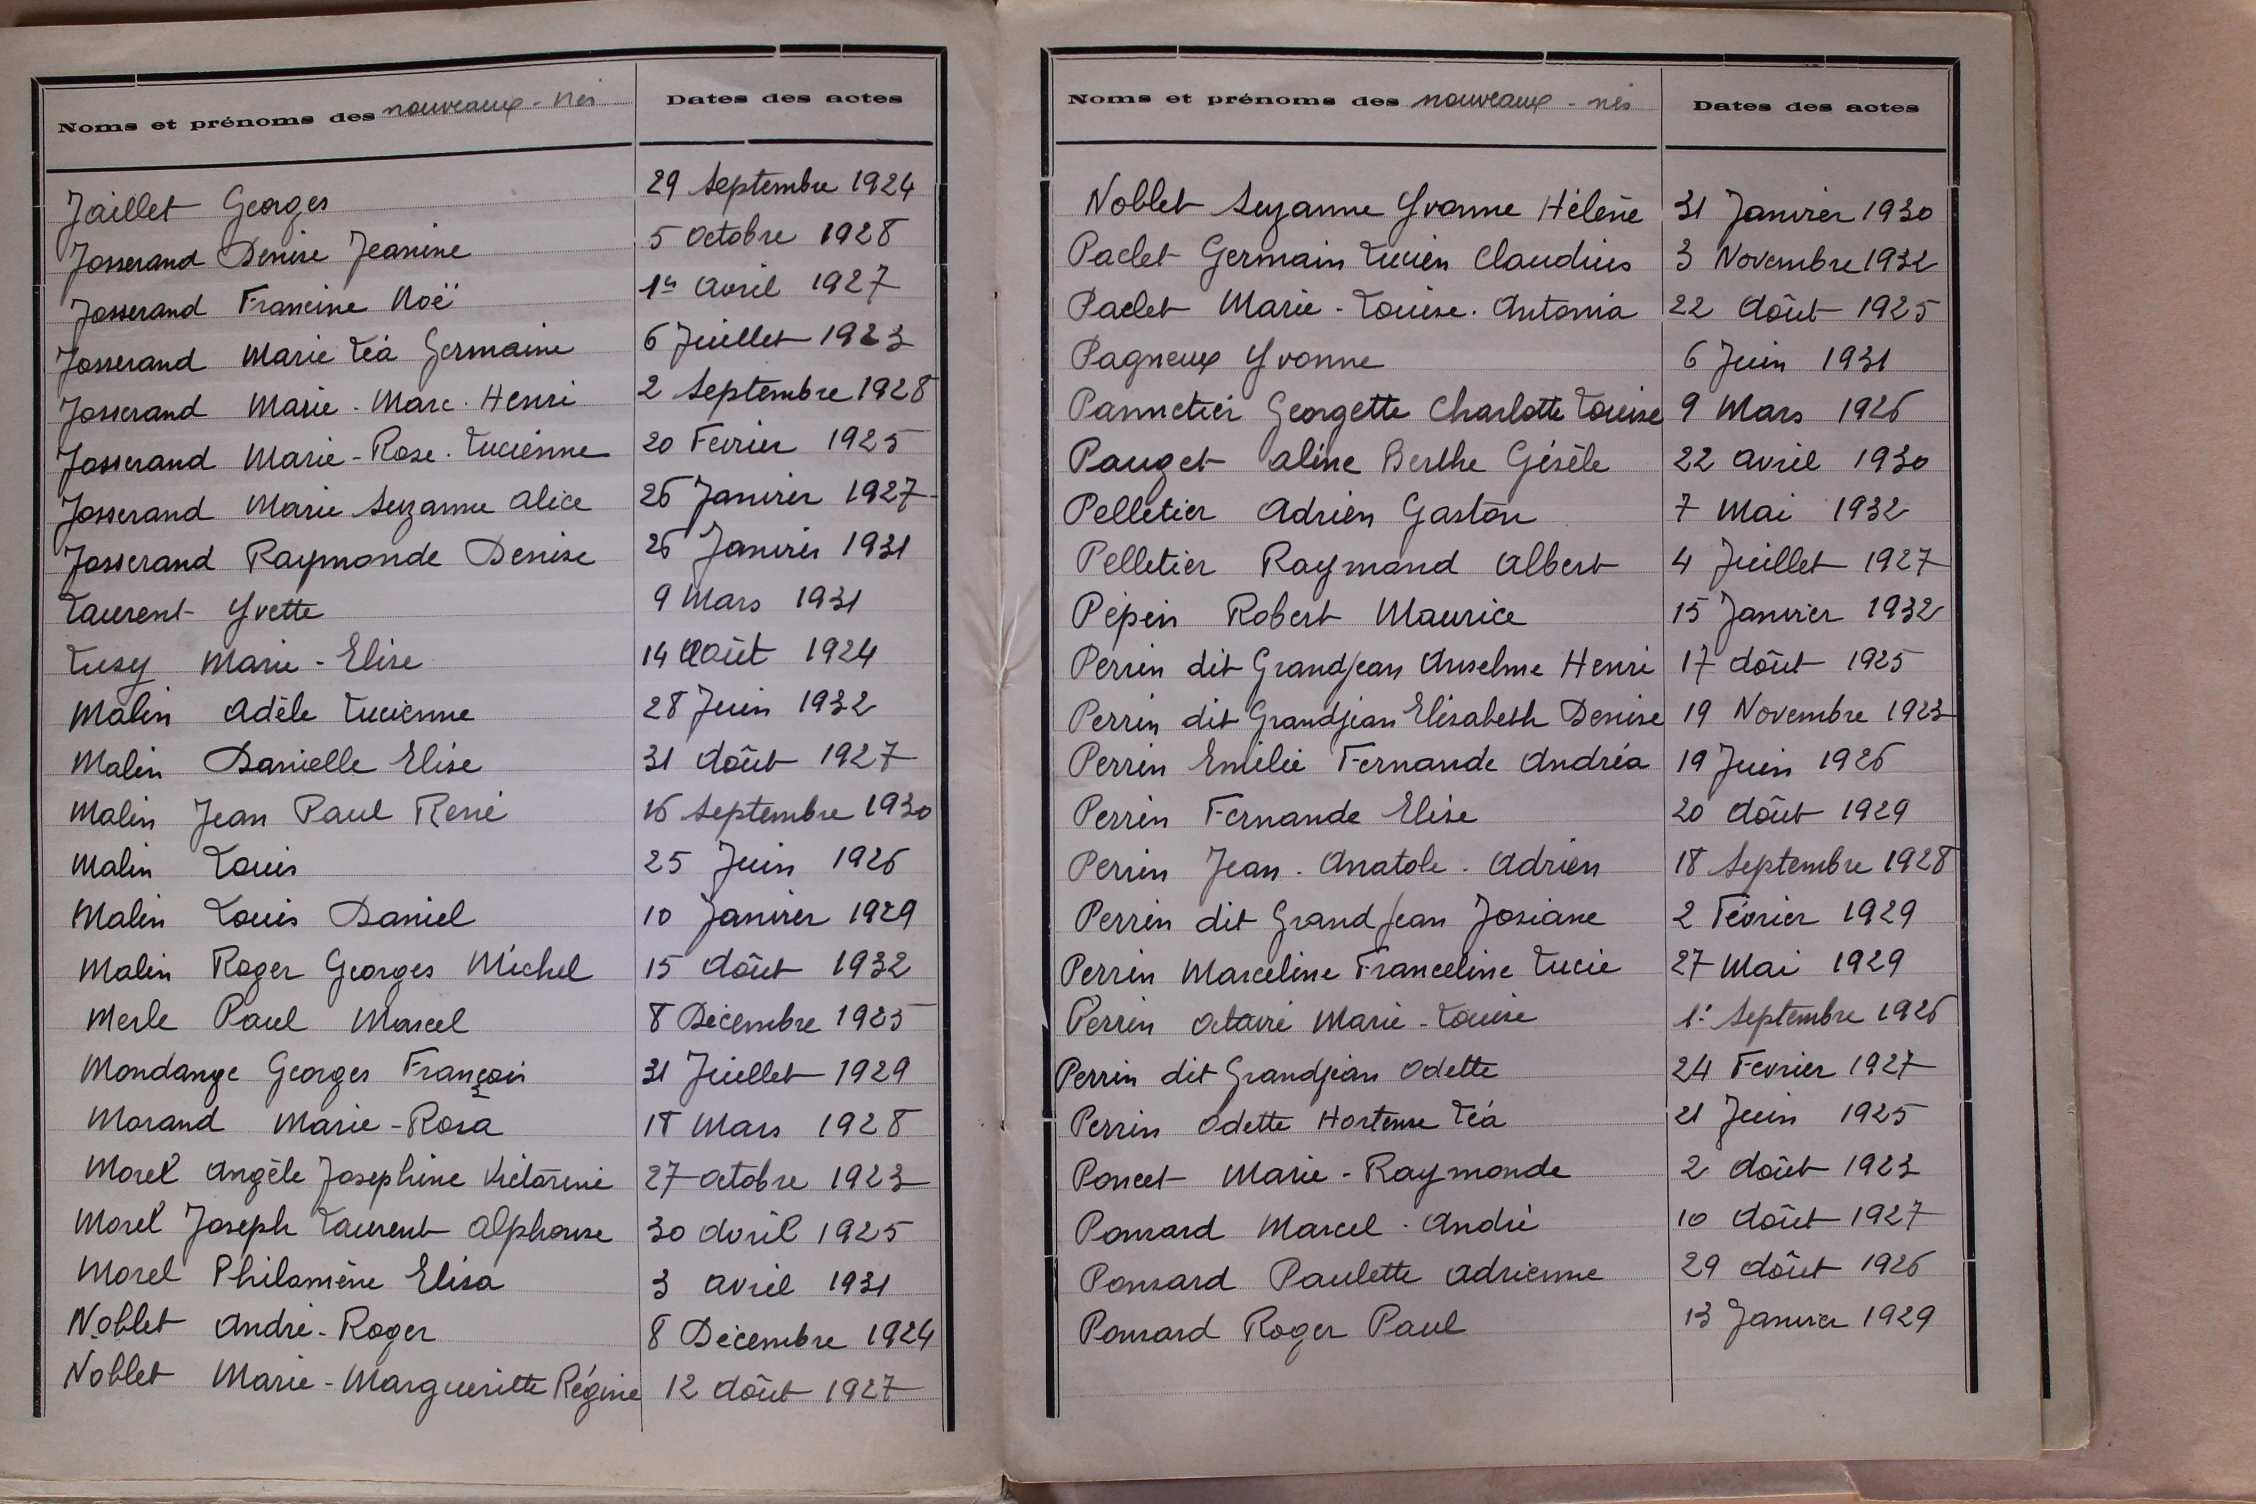 Noms et prénoms des nouveaux-nés Dates des actes
Jaillet Georges 29 Septembre 1924
Josserand Denise Jeanine 5 Octobre 1928
Josserand Francine Noë 1er Avril 1927
Josserand Marie Léa Germaine 6 Juillet 1923
Josserand Marie-Marc-Henri 2 Septembre 1928
Josserand Marie-Rose-Lucienne 20 Fevrier 1925
Josserand Marie Suzanne Alice 26 Janvier 1927
Josserand Raymonde Denise 26 Janvier 1931
Laurent Yvette 9 Mars 1931
Lusy Marie-Elise 14 Août 1924
Malin Adèle Lucienne 28 Juin 1932
Malin Danielle Elise 31 Août 1927
Malin Jean Paul René 16 Septembre 1930
Malin Louis 25 Juin 1926
Malin Louis Daniel 10 Janvier 1929
Malin Roger Georges Michel 15 Août 1932
Merle Paul Marcel 8 Décembre 1925
Mondange Georges François 31 Juillet 1929
Morand Marie-Rosa 18 Mars 1928
Morel Angèle Josephine Victorine 27 Octobre 1923
Morel Joseph Laurent Alphonse 30 Avril 1925
Morel Philomène Elisa 3 Avril 1931
Noblet André-Roger 8 Décembre 1924
Noblet Marie-Margueritte Régine 12 Août 1927
Noms et prénoms des nouveaux-nés Dates des actes
Noblet Suzanne Yvonne Hélène 31 Janvier 1930
Paclet Germain Lucien Claudius 3 Novembre 1932
Paclet Marie-Louise-Antonia 22 Août 1925
Pagneux Yvonne 6 Juin 1931
Pannetier Georgette Charlotte Louise 9 Mars 1926
Pauget Aline Berthe Gisèle 22 Avril 1930
Pelletier Adrien Gaston 7 Mai 1932
Pelletier Raymond Albert 4 Juillet 1927
Pépin Robert Maurice 15 Janvier 1932
Perrin dit Grandjean Anselme Henri 17 Août 1925
Perrin dit Grandjean Elisabeth Denise 19 Novembre 1923
Perrin Emilie Fernande Andréa 19 Juin 1926
Perrin Fernande Elise 20 Août 1929
Perrin Jean-Anatole-Adrien 18 Septembre 1928
Perrin dit Grandjean Josiane 2 Février 1929
Perrin Marceline Franceline Lucie 27 Mai 1929
Perrin Octavie Marie-Louise 1er Septembre 1926
Perrin dit Grandjean Odette 24 Fevrier 1927
Perrin Odette Hortense Léa 21 Juin 1925
Poncet Marie-Raymonde 2 Août 1923
Ponsard Marcel-André 10 Août 1927
Ponsard Paulette Adrienne 29 Août 1926
Ponsard Roger Paul 13 Janvier 1929